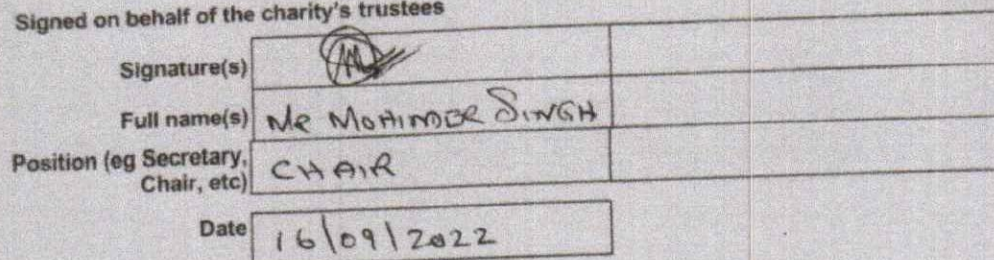 Signed on behalf of the charity's trustees
Signature(s)
Full name(s) MR MOHINDER SINGH
Position (eg Secretary,
Chair, etc) CHAIR
Date 16/09/2022